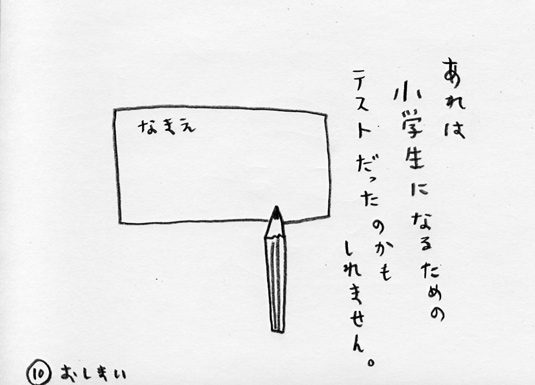 あれは
小学生になるための
テストだったのかも
しれません。
なまえ
⑩ おしまい